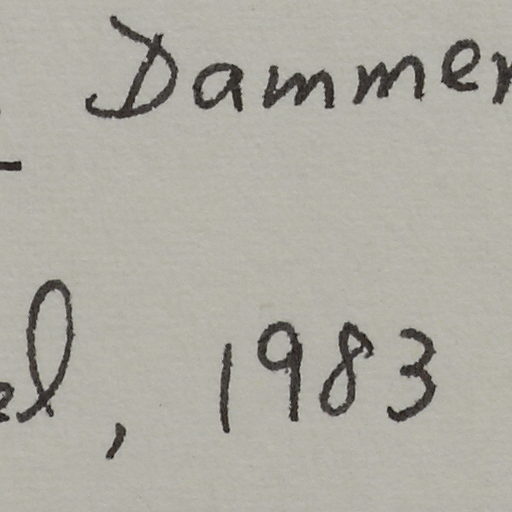 Dammer
el, 1983